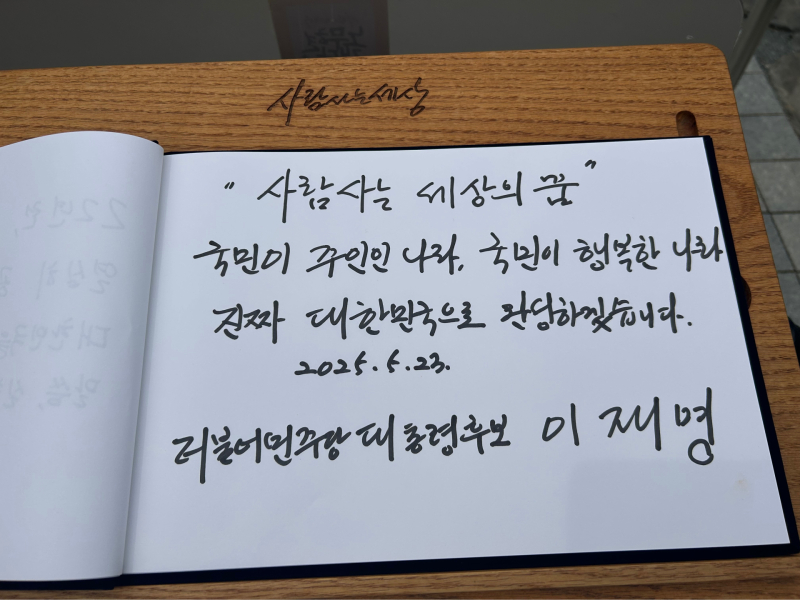 사람사는세상
“ 사람사는 세상의 꿈 ”
국민이 주인인 나라, 국민이 행복한 나라
진짜 대한민국으로 완성하겠습니다.
2025. 5. 23.
더불어민주당 대통령후보 이재명